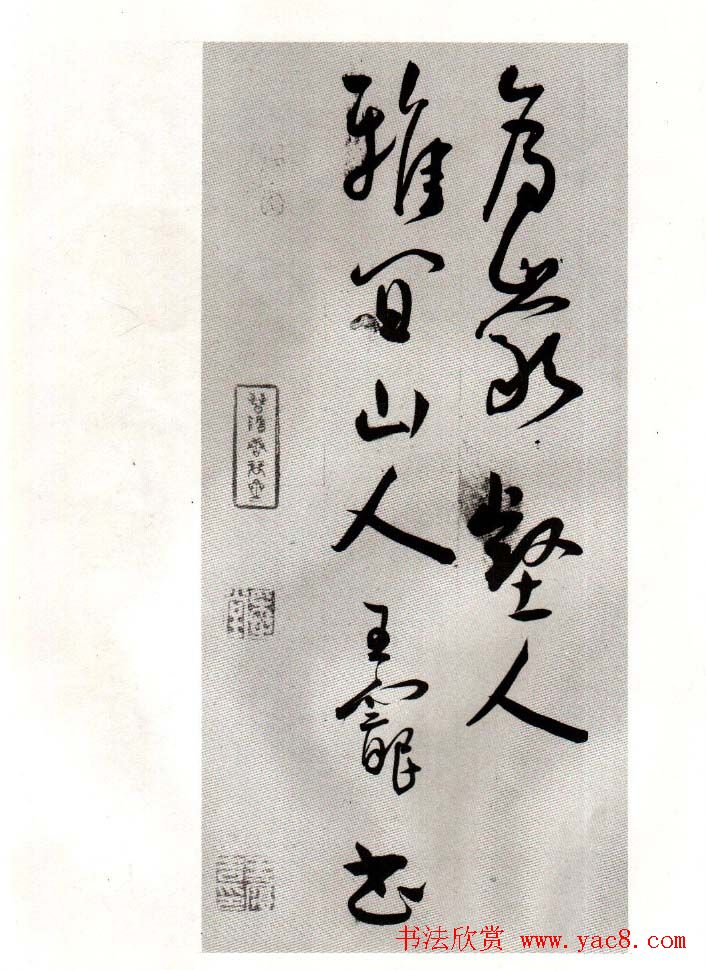 為巖壑人
雅宜山人王寵書
书法欣赏 www.yac8.com